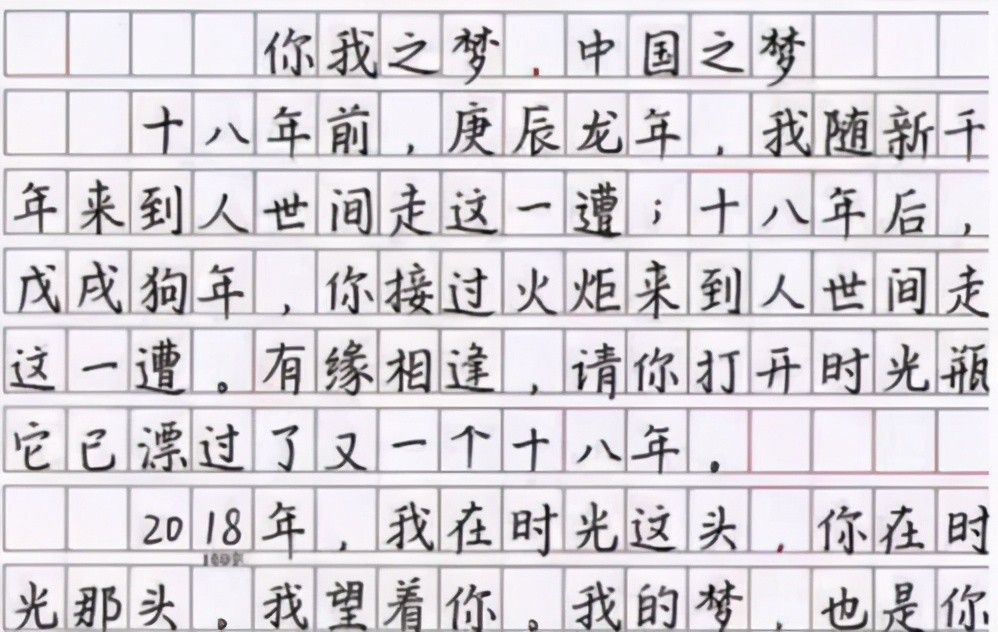 你我之梦，中国之梦
十八年前，庚辰龙年，我随新千
年来到人世间走这一遭；十八年后，
戊戌狗年，你接过火炬来到人世间走
这一遭。有缘相逢，请你打开时光瓶
它已漂过了又一个十八年。
2018年，我在时光这头，你在时
光那头。我望着你。我的梦，也是你